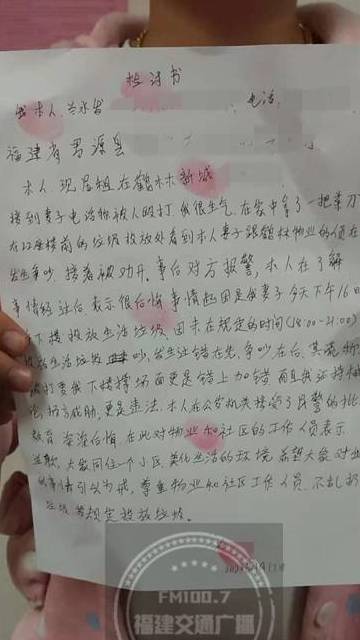 本人
电话
福建省寿源县
本人现居租在鹤林新城
接到妻子电话称被人殴打,我很生气,在家中拿了一把菜刀
在12座楼前的垃圾投放处看到本人妻子跟鹤林物业的值在
发生争吵,接着被劝开,事后对方报警,本人在了解
事情经过后表示很后悔,事情起因是我妻子今天下午16
下楼投放生活垃圾,因未在规定的时间(18:00-21:00)
投放生活垃圾 吵,发生过错在先,争吵在后,其
打要我下楼撑场面更是错上加错,而且我还持械
更是违法,本人在公安机关接受了民警的批
教育 后悔,在此对物业和社区的工作人员表示
道歉,大家同住一个小区,美化生活的环境,希望大家对
引以为戒,尊重物业和社区工作人员,不乱扔
垃圾 规定投放垃圾。
FM100.7
福建交通广播